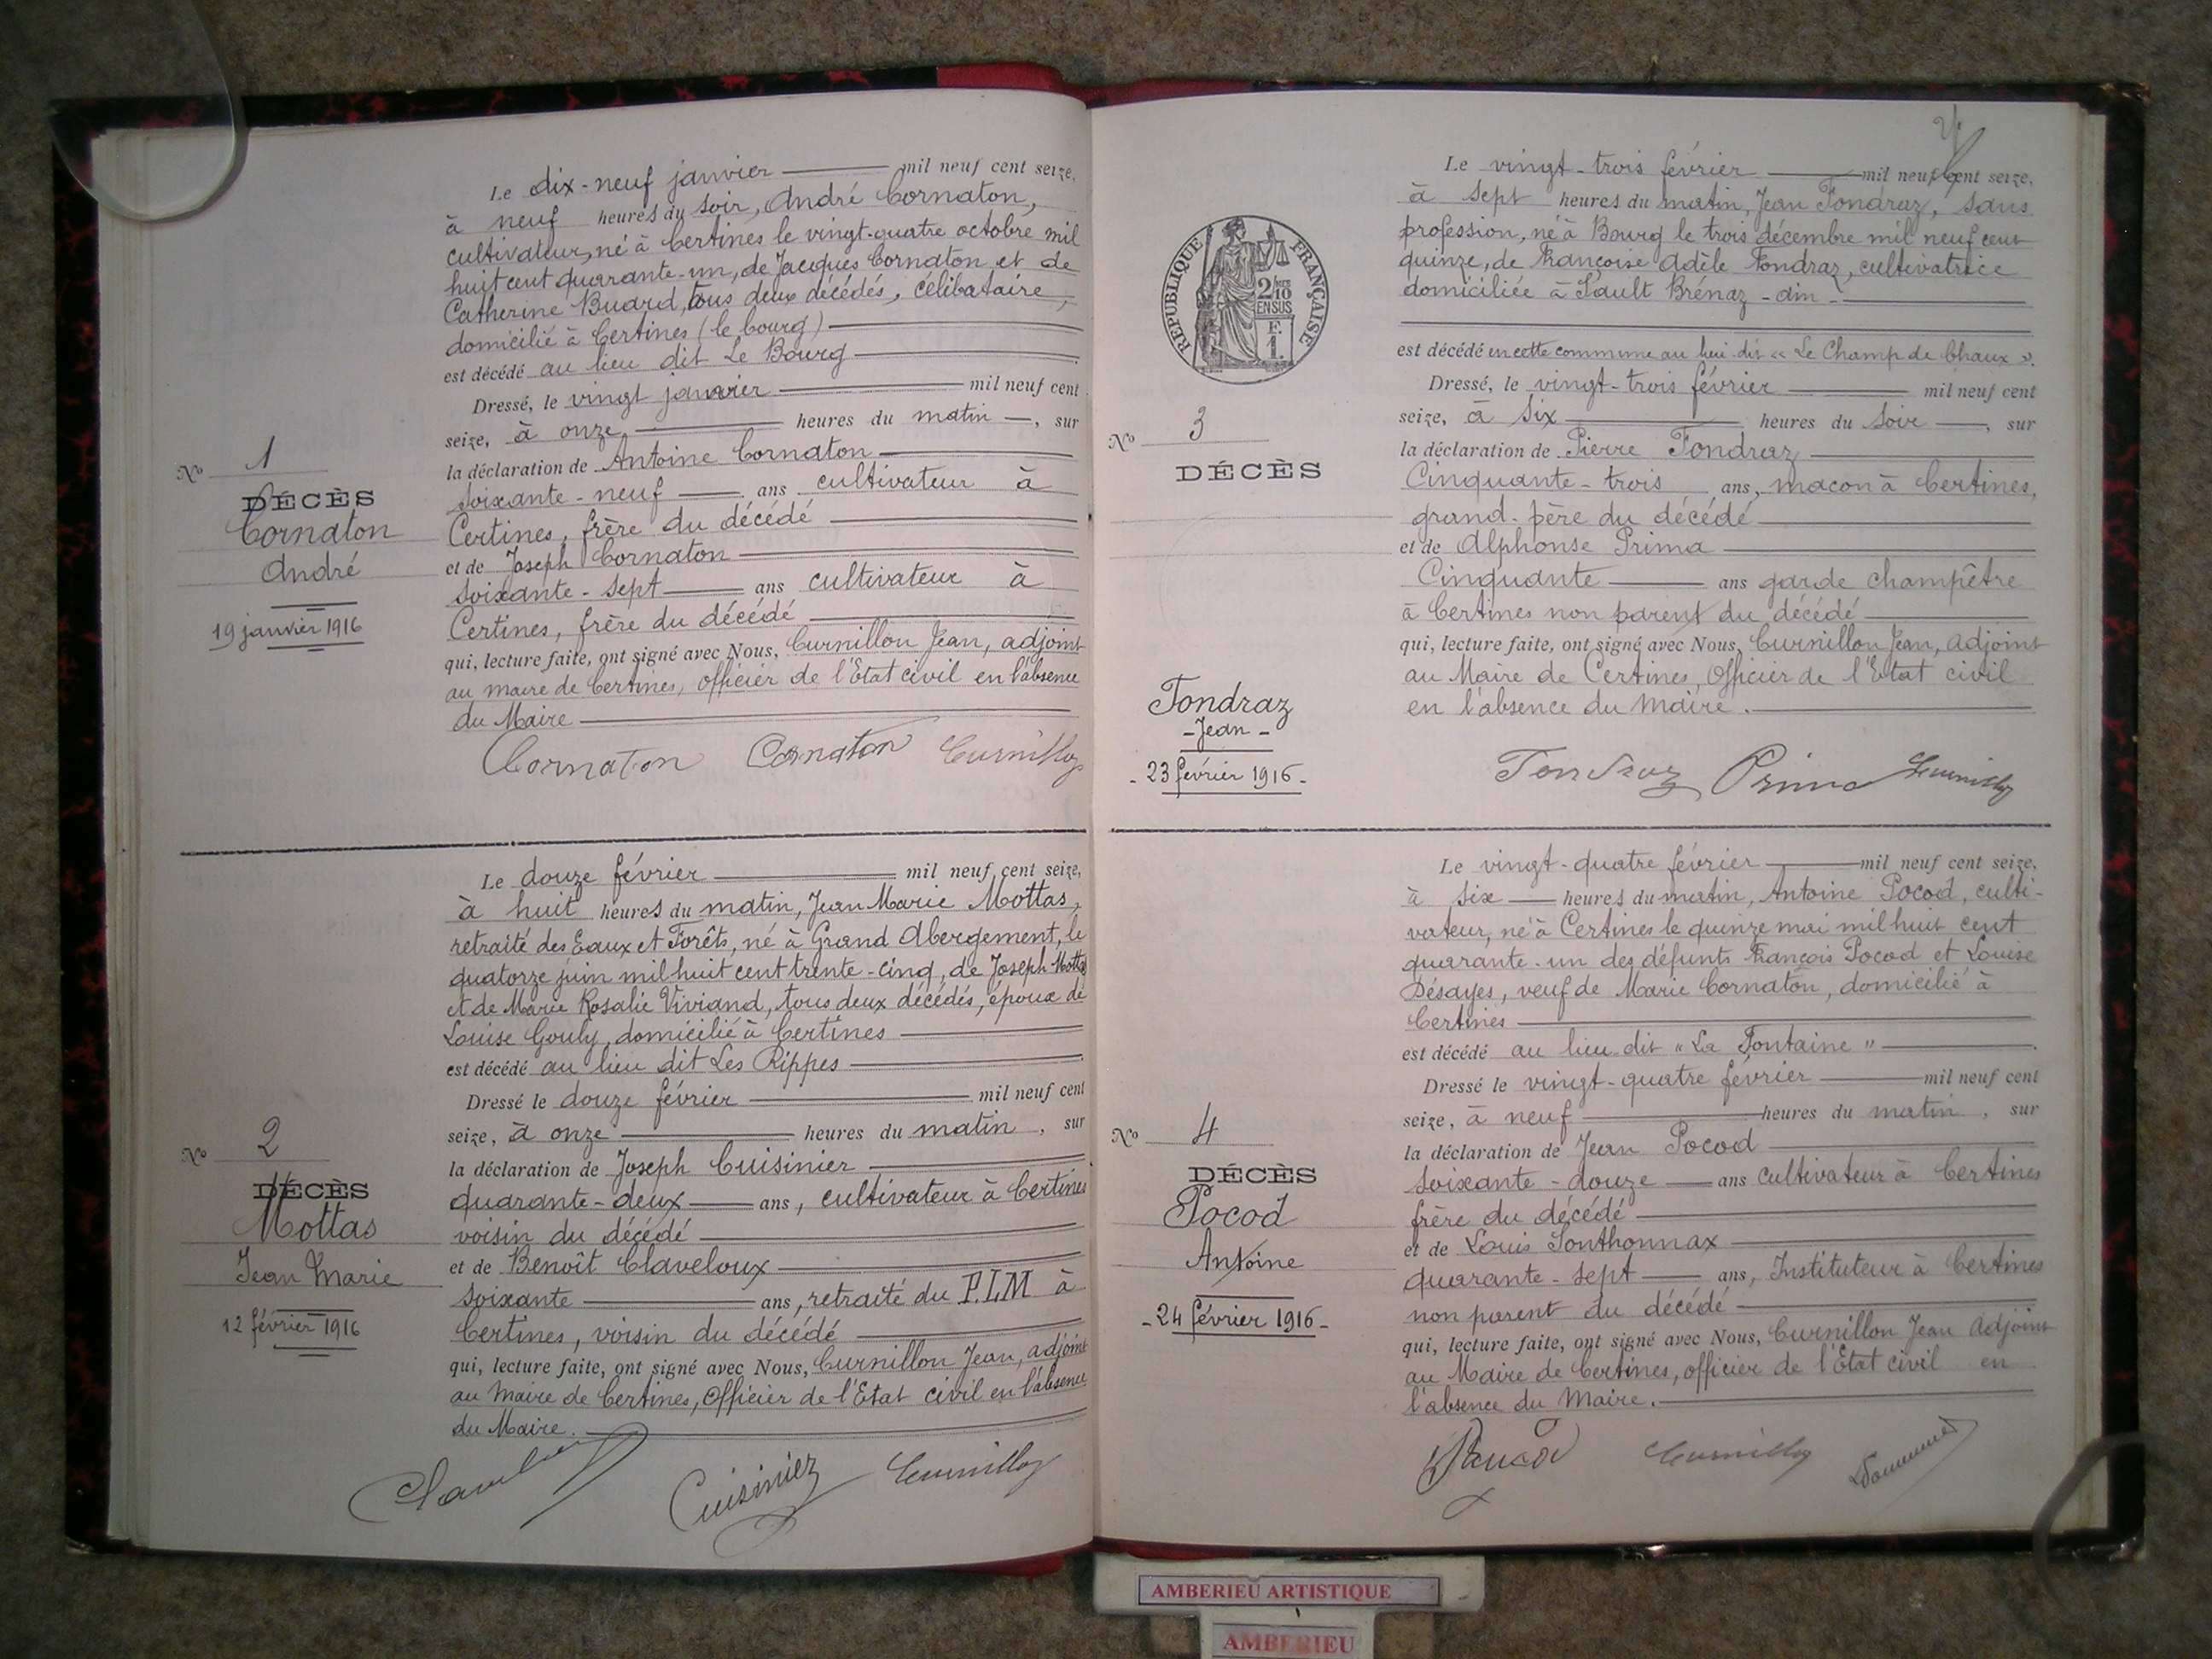 Le dix-neuf janvier mil neuf cent seize,
à neuf heures du soir, André Cornaton,
cultivateur, né à Certines le vingt-quatre octobre mil
huit cent quarante-un, de Jacques Cornaton et de
Catherine Buard, tous deux décédés, célibataire,
domicilié à Certines (le bourg)
est décédé au lieu dit Le Bourg
Dressé, le vingt janvier mil neuf cent
seize, à onze heures du matin, sur
la déclaration de Antoine Cornaton
soixante-neuf ans cultivateur à
Certines, frère du décédé
et de Joseph Cornaton
soixante-sept ans cultivateur à
Certines, frère du décédé
qui, lecture faite, ont signé avec Nous, Curnillon Jean, adjoint
au maire de Certines, officier de l'Etat civil en l'absence
du Maire
Cornaton Cornaton Curnillon
No 1
DÉCÈS
Cornaton
André
19 janvier 1916
Le douze février mil neuf cent seize,
à huit heures du matin, Jean Marie Mottas,
retraité des Eaux et Forêts, né à Grand Abergement, le
quatorze juin mil huit cent trente-cinq, de Joseph Mottas
et de Marie Rosalie Viviand, tous deux décédés, époux de
Louise Gouly, domicilié à Certines
est décédé au lieu dit Les Rippes
Dressé le douze février mil neuf cent
seize, à onze heures du matin, sur
la déclaration de Joseph Cuisinier
quarante-deux ans, cultivateur à Certines
voisin du décédé
et de Benoît Claveloux
soixante ans, retraité du P.L.M à
Certines, voisin du décédé
qui, lecture faite, ont signé avec Nous, Curnillon Jean, adjoint
au Maire de Certines, Officier de l'Etat civil en l'absence
du Maire.
Claveloux Cuisinier Curnillon
No 2
DÉCÈS
Mottas
Jean Marie
12 février 1916
Le vingt-trois février mil neuf cent seize,
à sept heures du matin, Jean Fondraz, sans
profession, né à Bourg le trois décembre mil neuf cent
quinze, de Françoise Adèle Fondraz, cultivatrice
domiciliée à Sault Brénaz - Ain -
est décédé en cette commune au lieu dit « Le Champ de Chaux ».
Dressé, le vingt-trois février mil neuf cent
seize, à six heures du soir, sur
la déclaration de Pierre Fondraz
Cinquante-trois ans, maçon à Certines,
grand-père du décédé
et de Alphonse Prima
Cinquante ans garde champêtre
à Certines non parent du décédé
qui, lecture faite, ont signé avec Nous, Curnillon Jean, adjoint
au Maire de Certines, Officier de l'Etat civil
en l'absence du Maire.
Fondraz Prima Curnillon
REPUBLIQUE FRANÇAISE
2/10
EN SUS
F.
1.
No 3
DÉCÈS
Fondraz
- Jean -
- 23 février 1916 -
Le vingt-quatre février mil neuf cent seize,
à six heures du matin, Antoine Pocod, culti-
vateur, né à Certines le quinze mai mil huit cent
quarante-un des défunts François Pocod et Louise
Désayes, veuf de Marie Cornaton, domicilié à
Certines
est décédé au lieu dit "La Fontaine"
Dressé le vingt-quatre février mil neuf cent
seize, à neuf heures du matin, sur
la déclaration de Jean Pocod
soixante-douze ans cultivateur à Certines
frère du décédé
et de Louis Sonthonnax
quarante-sept ans, Instituteur à Certines
non parent du décédé
qui, lecture faite, ont signé avec Nous, Curnillon Jean Adjoint
au Maire de Certines, officier de l'Etat civil en
l'absence du Maire.
Curnillon
No 4
DÉCÈS
Pocod
Antoine
- 24 février 1916 -
AMBERIEU ARTISTIQUE
AMBERIEU